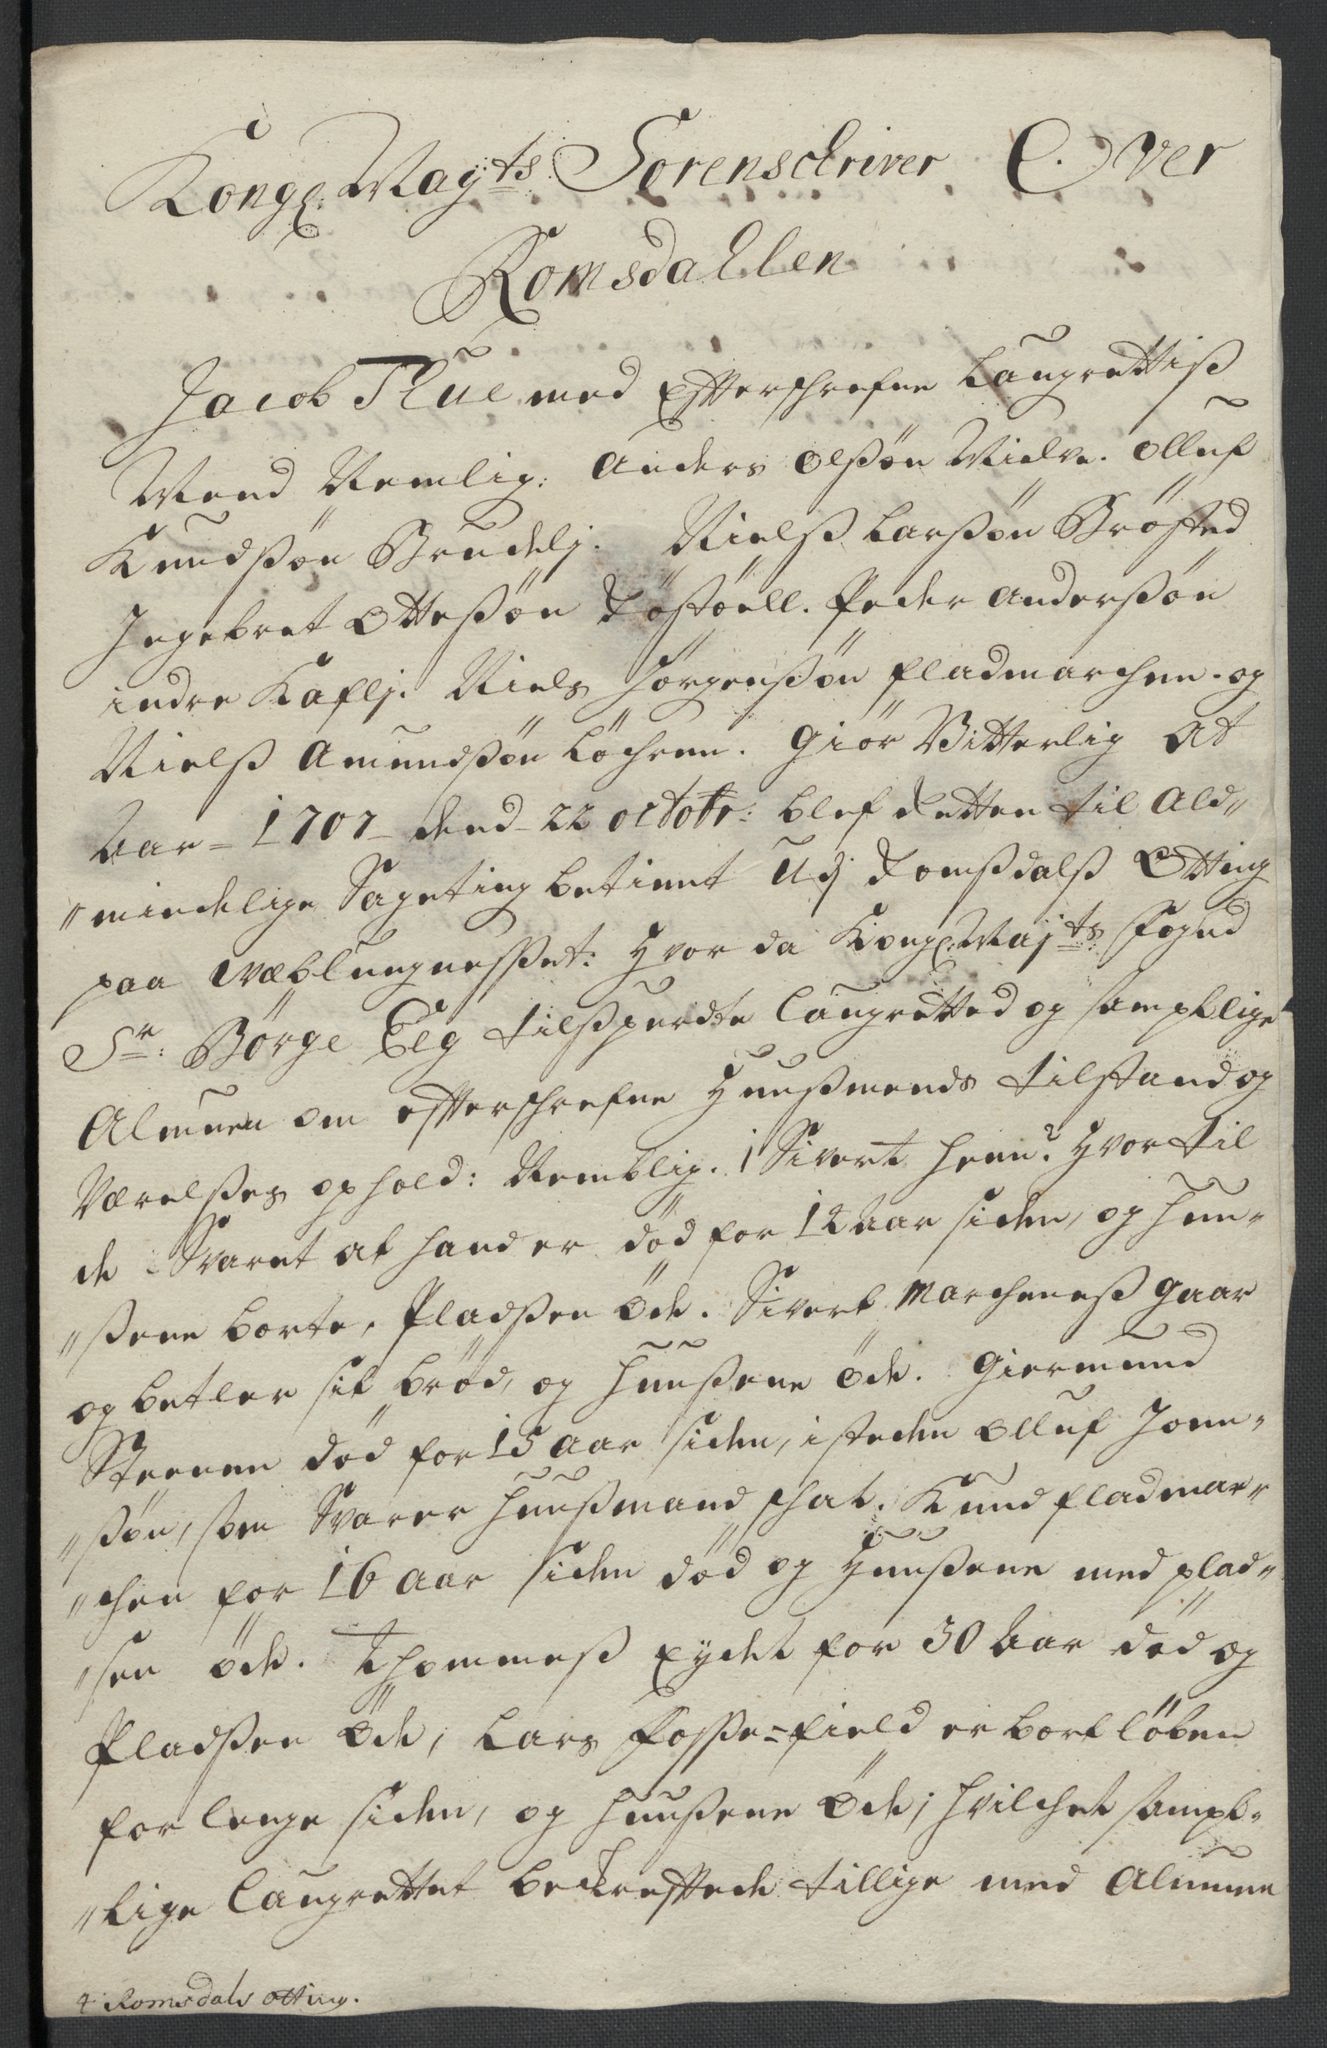 Kongl: Maÿts Sorenschriver Over
Romsdahlen
Jacob Thue med Efterschrefne Laugrettiss
Mend Nemlig: Anders Olssøn Mielve. Olluf
Knudssøn Brudelj. Nielss Larssøn Brøsted
Ingebret Ottessøn Døstøell. Peder Anderssøn
indre Kaflj. Niels Jørgenssøn Fladmarchen. og
Nielss Amundssøn Løchenn. Giør Vitterlig At
Aar = 1707 dend 22 octobr: blef Retten til Ald"
"mindelige Sageting betient Udj Romssdalss Otting
paa Wæblungnesset: Hvor da Kongl. Majts Fogud
Sr: Børge Elg tilsspurdte Laugretted og samptlige
Almuen om efterschrefne Huussmends tilstand og
Værelsses ophold: Nemblig. 1 Sivert Henn? Hvor til
de Svaret at hand er død for 12 Aar siden, og Huu"
"ssene borte, Pladssen Øde. Sivert Marcheness gaar
og betler sit brød, og Huussene øde. Giermund
Steenen død for 15 aar siden, isteden Olluf Jonn"
"ssøn, som Svarer Huussmand schat. Knud Fladmar"
"chen for 16 aar siden død og Huussene med plad"
"sen øde. Thommess Eydet for 30 Aar død og
Pladssen Øde, Lars Fosse=field er bortløben
for lenge siden, og Huussene Øde; hvilchet sampt"
"lige Laugrettet bechreftede tillige med Almuen
4. Romsdals otting.